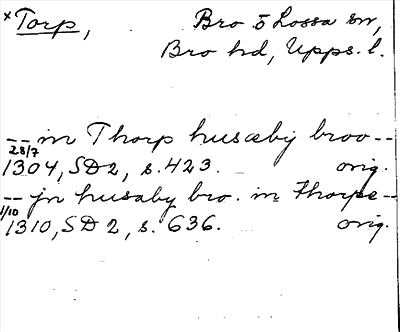 × Torp, Bro o Lossa sn,
Bro hd, Upps. l.
-- in Thorp husæby broo --
28/7
1304, SD 2, s. 423. orig.
-- jn husaby bro. in thorpe --
1/10
1310, SD 2, s. 636. orig.